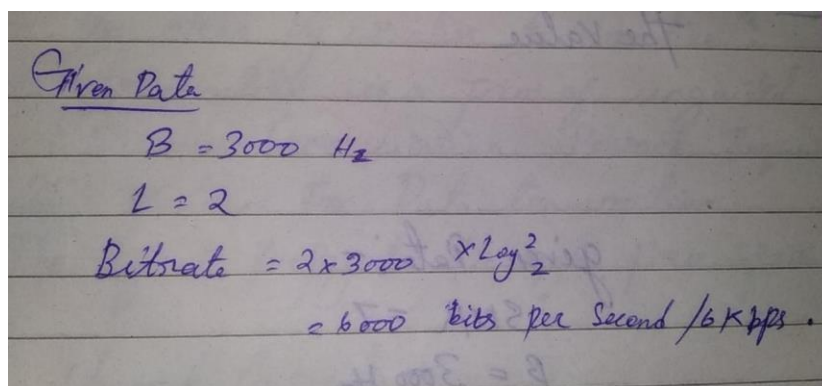 Given Data
B = 3000 Hz
L = 2
Bitrate = 2 x 3000 x Log 2 2
= 6000 bits per Second / 6 Kbps .